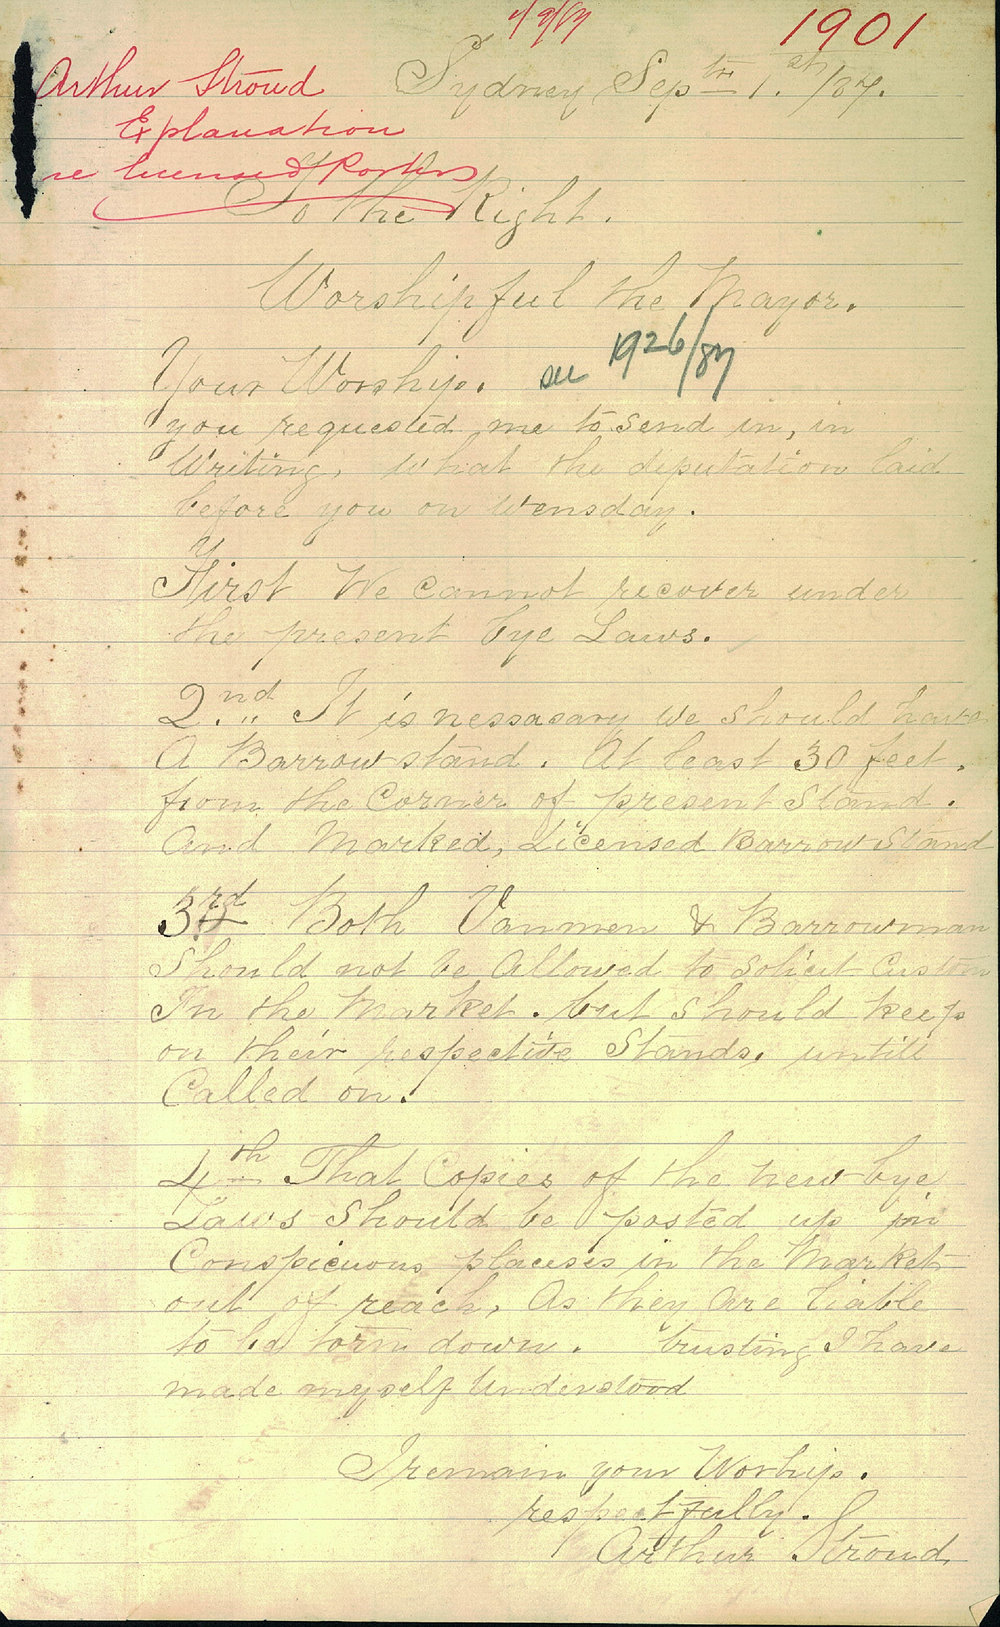 1/9/87
1901
Arthur Stroud
Explanation
re licensed Porters
Sydney Sep^tr 1.^st/87.
To the Right.
Worshipful the Mayor.
see 1926/87
Your Worship.
you requested me to send in, in
Writing, what the deputation laid
before you on Wensday.
First We cannot recover under
the present bye Laws.
2.nd It is nessasary we should have
A Barrow stand. At least 30 feet.
from the Corner of present Stand.
And Marked, Licensed Barrow Stand
3rd Both Vanmen & Barrowman
Should not be Allowed to solicit Custom
In the Market. but should keep
on their respective Stands, untill
Called on.
4th That Copies of the new bye
Laws Should be posted up in
Conspicuous placeses in the Market
out of reach, As they Are liable
to be torn down. trusting I have
made myself Understood
I remain your Worhip.
respectfully.
Arthur Stroud